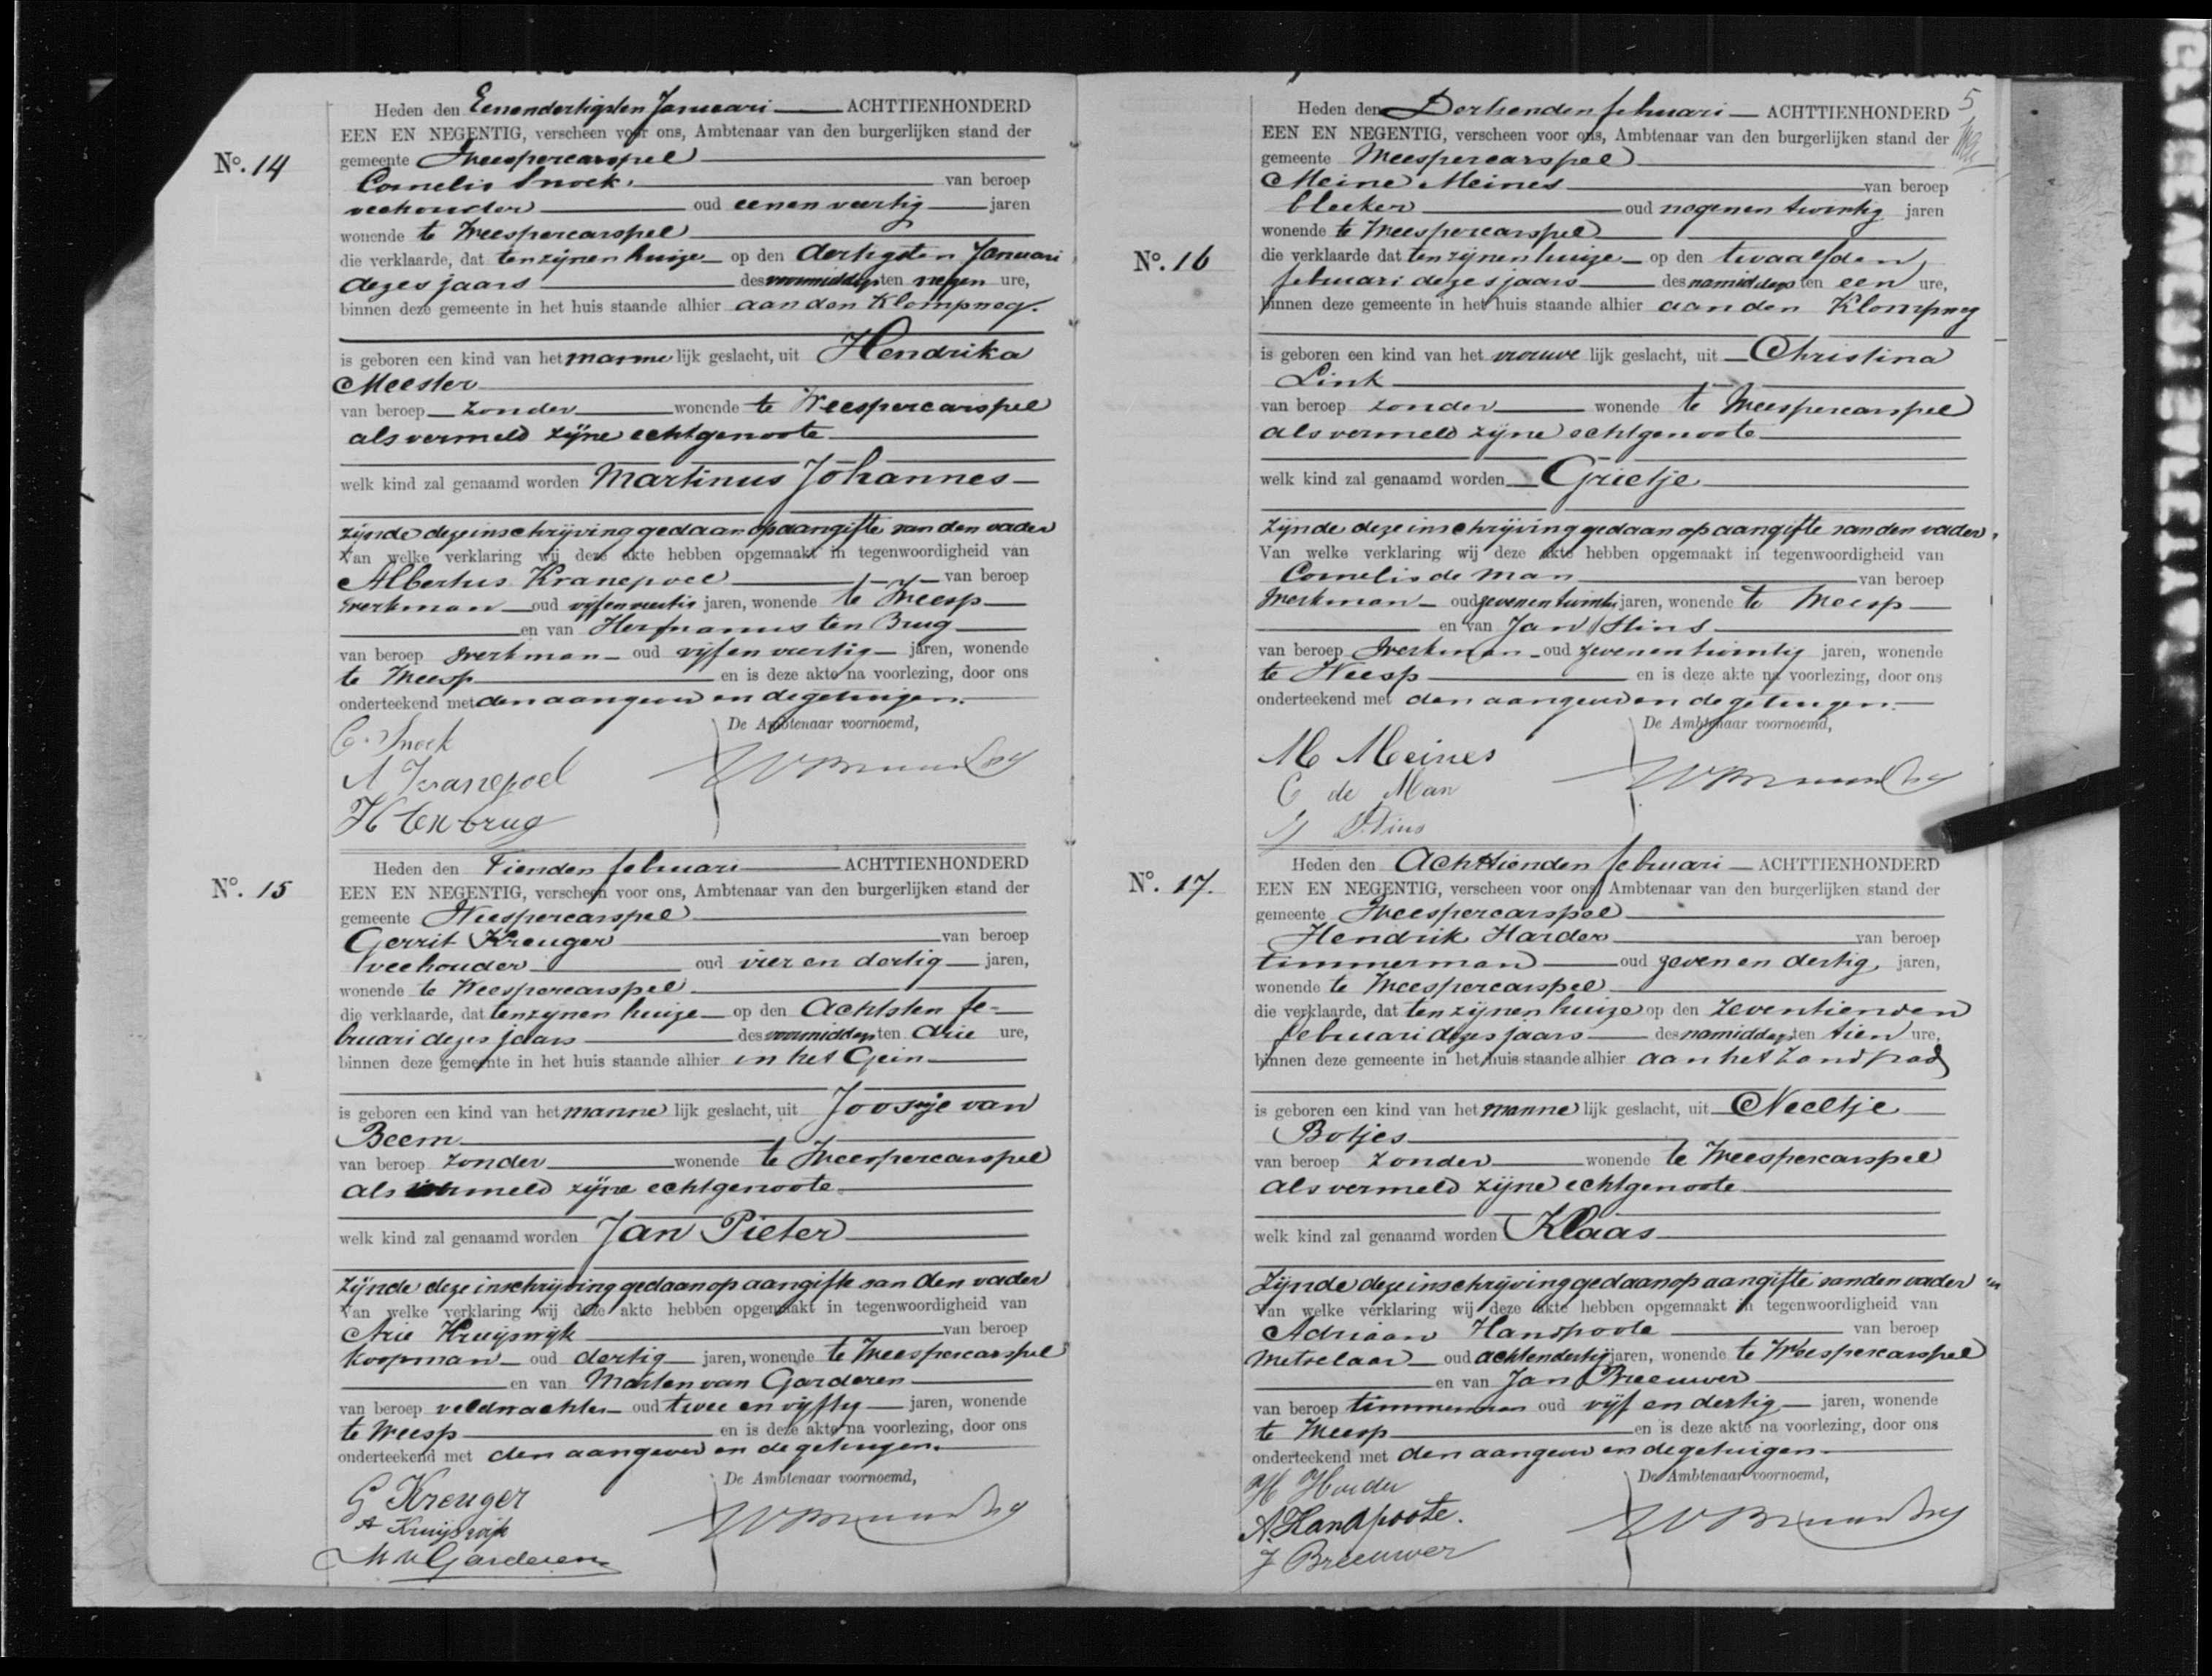 No. 14
Heden den Eenendertigsten Januari ACHTTIENHONDERD
EEN EN NEGENTIG, verscheen voor ons, Ambtenaar van den burgerlijken stand der
gemeente Weespercarspel
Cornelis Snoek van beroep
veehouder oud eenen veertig jaren
wonende te Weespercarspel
die verklaarde, dat ten zijnen huize op den dertigsten Januari
dezes jaars des voormiddags ten negen ure,
binnen deze gemeente in het huis staande alhier aan den Klompweg.
is geboren een kind van het manne lijk geslacht, uit Hendrika
Meester
van beroep zonder wonende te Weespercarspel
als vermeld zijne echtgenoote
welk kind zal genaamd worden Martinus Johannes
zijnde deze inschrijving gedaan op aangifte van den vader
Van welke verklaring wij deze akte hebben opgemaakt in tegenwoordigheid van
Albertus Kranepoel van beroep
werkman oud vijfenveertig jaren, wonende te Weesp
en van Hermanus ten Brug
van beroep werkman oud vijf en veertig jaren, wonende
te Weesp en is deze akte na voorlezing, door ons
onderteekend met den aangever en de getuigen.
De Ambtenaar voornoemd,
C. Snoek
A Kranepoel
H ten brug
No. 15
Heden den Tienden februari ACHTTIENHONDERD
EEN EN NEGENTIG, verscheen voor ons, Ambtenaar van den burgerlijken stand der
gemeente Weespercarspel
Gerrit Kreuger van beroep
veehouder oud vier en dertig jaren,
wonende te Weespercarspel
die verklaarde, dat ten zijnen huize op den Achtsten fe-
bruari dezes jaars des voormiddags ten drie ure,
binnen deze gemeente in het huis staande alhier in het Gein
is geboren een kind van het manne lijk geslacht, uit Joosje van
Beem
van beroep zonder wonende te Weespercarspel
als vermeld zijne echtgenoote
welk kind zal genaamd worden Jan Pieter
zijnde deze inschrijving gedaan op aangifte van den vader
Van welke verklaring wij deze akte hebben opgemaakt in tegenwoordigheid van
Arie Kruijswijk van beroep
koopman oud dertig jaren, wonende te Weespercarspel
en van Marten van Garderen
van beroep veldwachter oud twee en vijftig jaren, wonende
te Weesp en is deze akte na voorlezing, door ons
onderteekend met den aangever en de getuigen.
De Ambtenaar voornoemd,
G Kreuger
A Kruijswijk
M v Garderen
5
No. 16
Heden den Dertienden februari ACHTTIENHONDERD
EEN EN NEGENTIG, verscheen voor ons, Ambtenaar van den burgerlijken stand der
gemeente Weespercarspel
Meine Meines van beroep
bleeker oud negenen twintig jaren
wonende te Weespercarspel
die verklaarde dat ten zijnen huize op den twaalfden
februari dezes jaars des namiddags ten een ure,
binnen deze gemeente in het huis staande alhier aan den Klompweg
is geboren een kind van het vrouwe lijk geslacht, uit Christina
Link
van beroep zonder wonende te Weespercarspel
als vermeld zijne echtgenoote
welk kind zal genaamd worden Grietje
zijnde deze inschrijving gedaan op aangifte van den vader
Van welke verklaring wij deze akte hebben opgemaakt in tegenwoordigheid van
Cornelis de Man van beroep
werkman oud zevenentwintig jaren, wonende te Weesp
en van Jan Stins
van beroep werkman oud zevenentwintig jaren, wonende
te Weesp en is deze akte na voorlezing, door ons
onderteekend met den aangever en de getuigen.
De Ambtenaar voornoemd,
M Meines
C de Man
J Stins
No. 17.
Heden den Achttienden februari ACHTTIENHONDERD
EEN EN NEGENTIG, verscheen voor ons, Ambtenaar van den burgerlijken stand der
gemeente Weespercarspel
Hendrik Harder van beroep
timmerman oud zeven en dertig, jaren,
wonende te Weespercarspel
die verklaarde, dat ten zijnen huize op den zeventienden
februari dezes jaars des namiddags ten tien ure,
binnen deze gemeente in het huis staande alhier aan het Zandpad
is geboren een kind van het manne lijk geslacht, uit Neeltje
Botjes
van beroep zonder wonende te Weespercarspel
als vermeld zijne echtgenoote
welk kind zal genaamd worden Klaas
zijnde deze inschrijving gedaan op aangifte van den vader
Van welke verklaring wij deze akte hebben opgemaakt in tegenwoordigheid van
Adriaan Handpoote van beroep
metselaar oud achtendertig jaren, wonende te Weespercarspel
en van Jan Breeuwer
van beroep timmerman oud vijf en dertig jaren, wonende
te Weesp en is deze akte na voorlezing, door ons
onderteekend met den aangever en de getuigen
De Ambtenaar voornoemd,
H Harder
A. Handpoote.
J Breeuwer